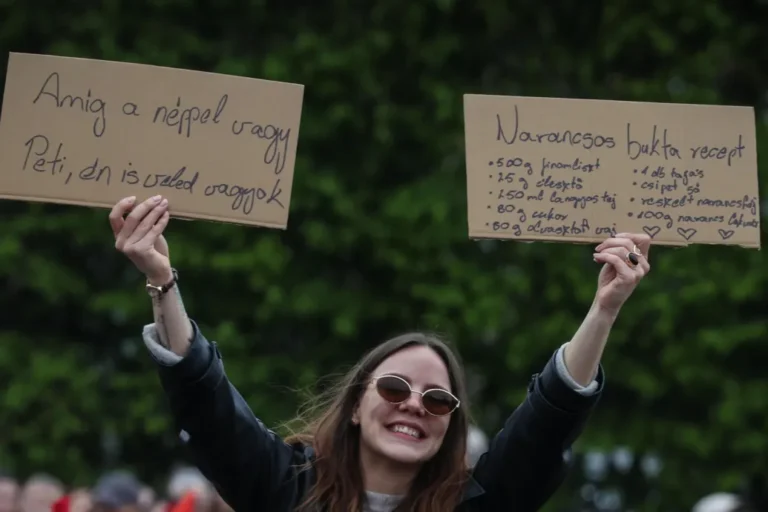 Amig a néppel vagy
Peti, én is veled vagyok
Narancsos bukta recept
• 500g finomliszt
• 25g élesztő
• 250ml langyos tej
• 80g cukor
• 80g olvasztott vaj
• 1 db tojás
• csipet só
• reszelt narancshéj
• 100g narancs lekvár